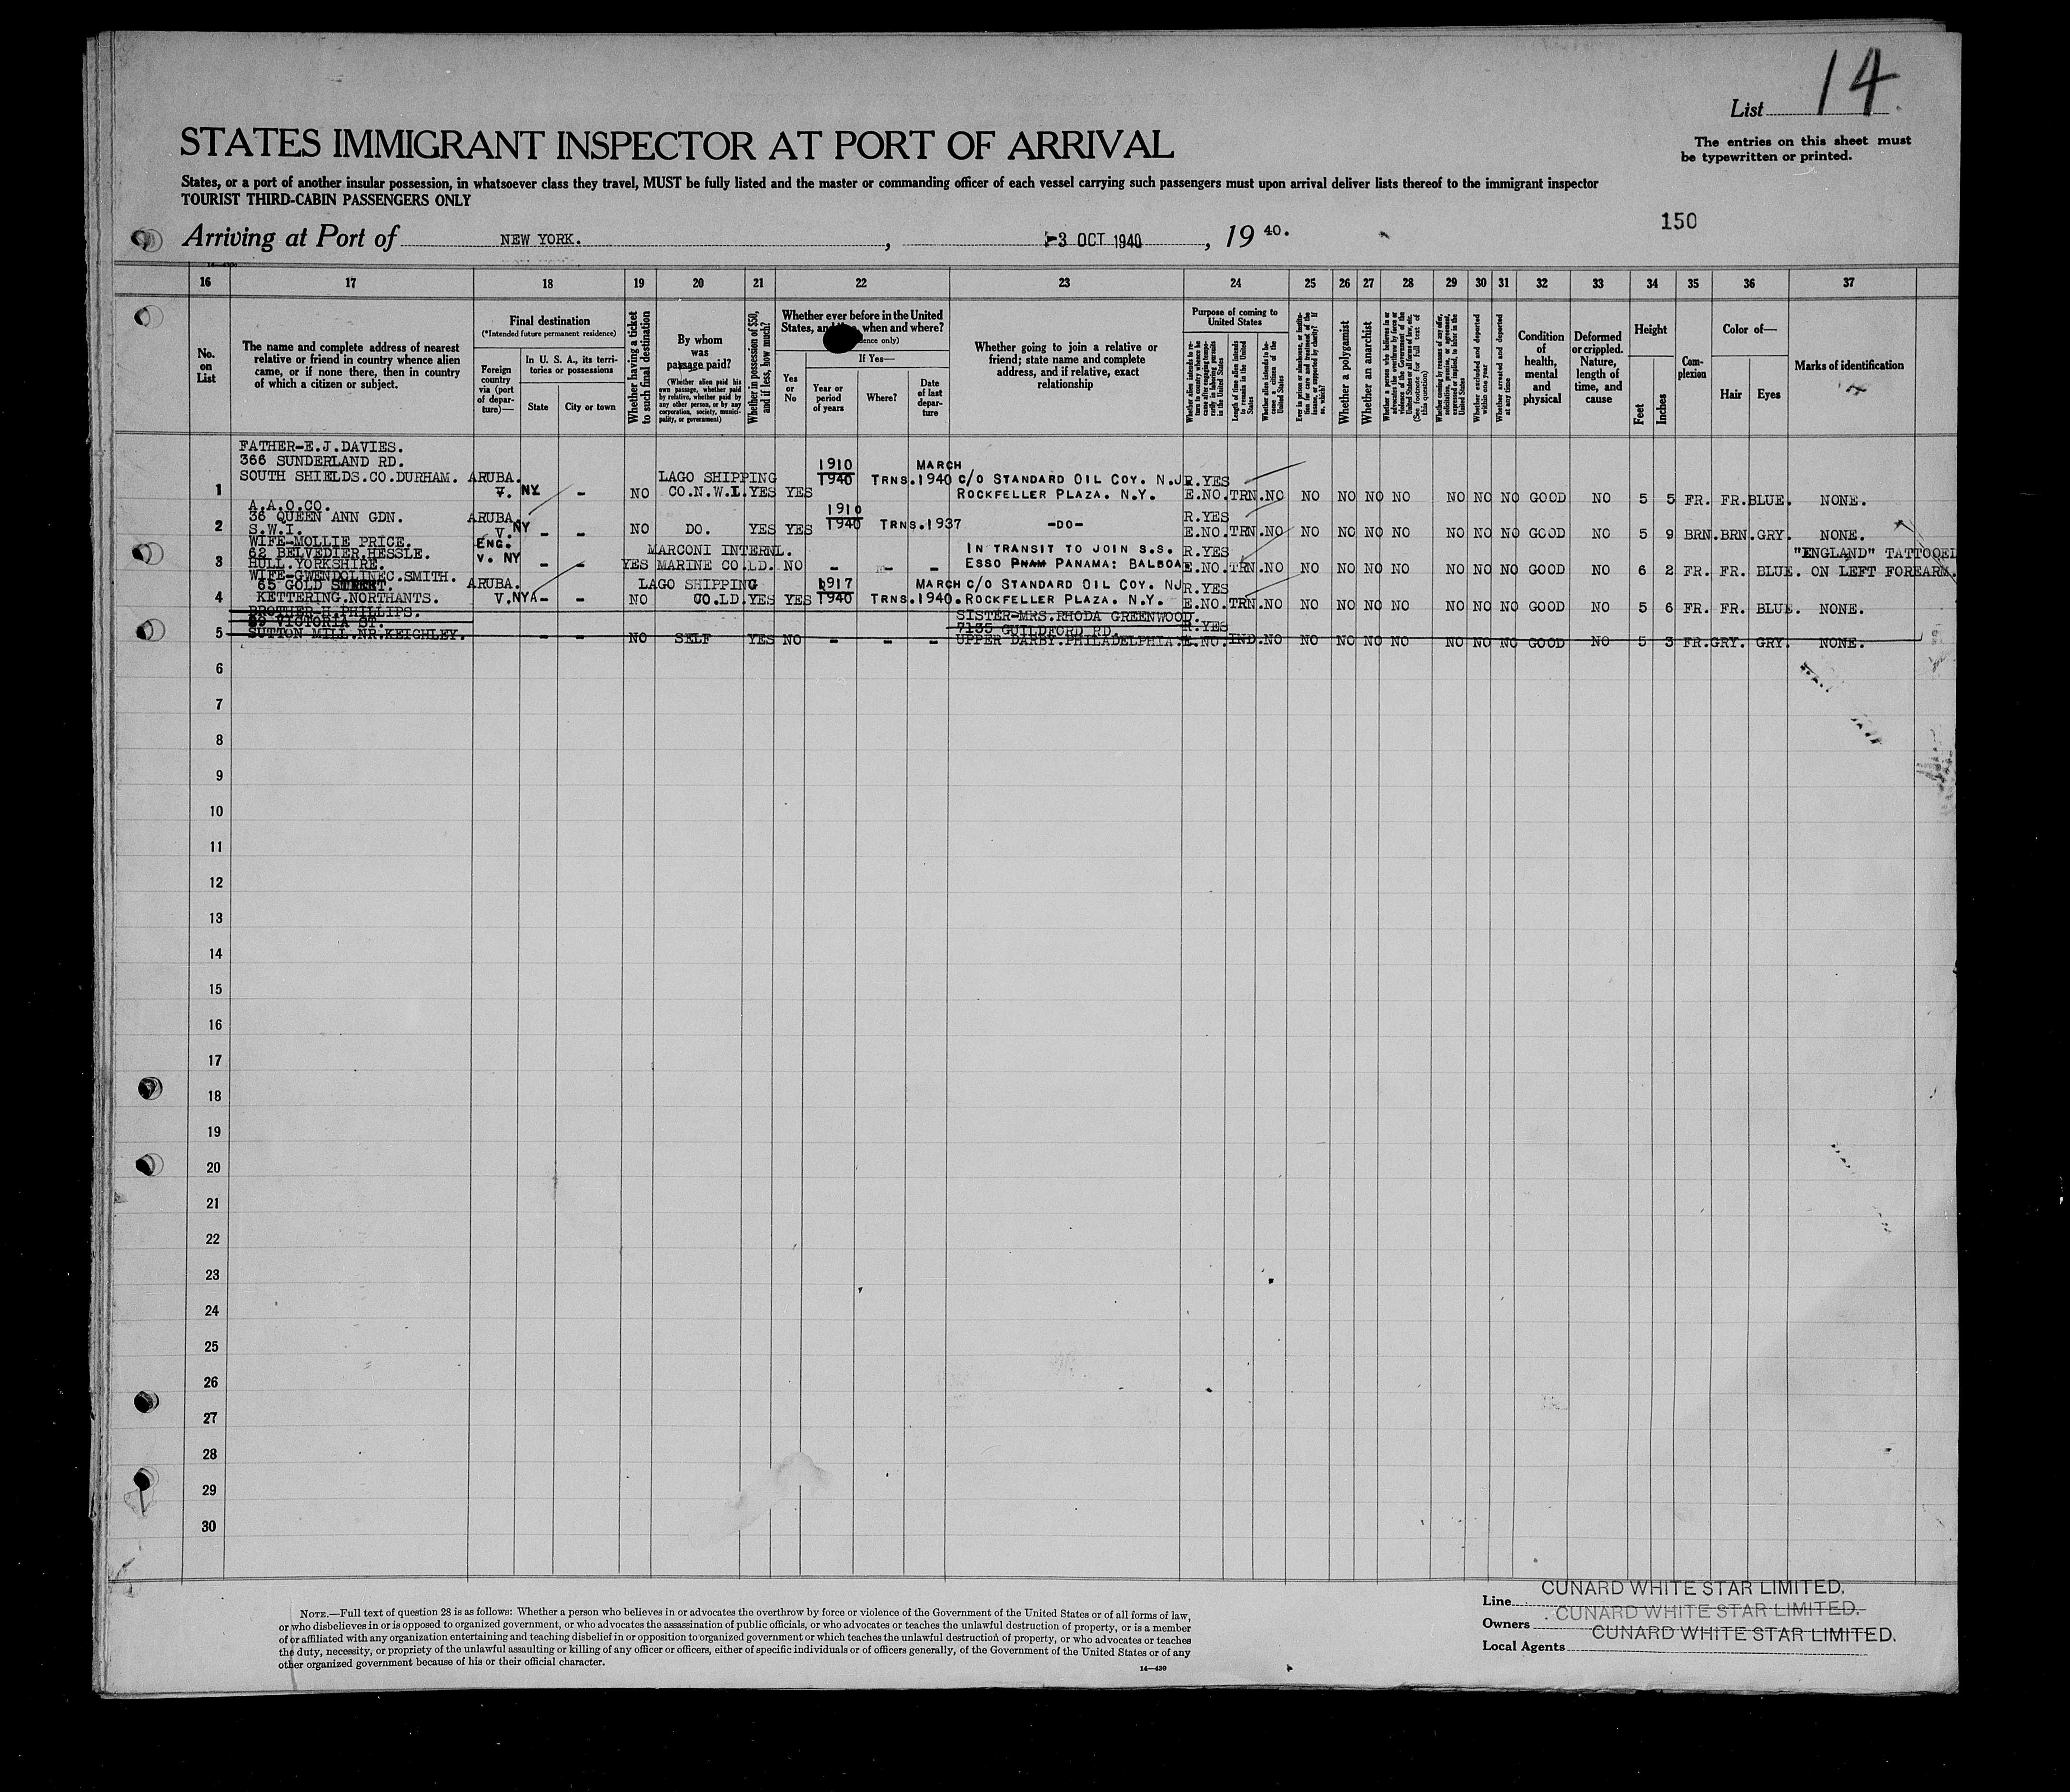 List 14.
STATES IMMIGRANT INSPECTOR AT PORT OF ARRIVAL
The entries on this sheet must
be typewritten or printed.
States, or a port of another insular possession, in whatsoever class they travel, MUST be fully listed and the master or commanding officer of each vessel carrying such passengers must upon arrival deliver lists thereof to the immigrant inspector
TOURIST THIRD-CABIN PASSENGERS ONLY
150
Arriving at Port of NEW YORK. , -3 OCT 1940 , 19 40.
16 17 18 19 20 21 22 23 24 25 26 27 28 29 30 31 32 33 34 35 36 37
No.
on
List
The name and complete address of nearest
relative or friend in country whence alien
came, or if none there, then in country
of which a citizen or subject.
Final destination
(*Intended future permanent residence)
Foreign
country
via (port
of depar-
ture)—
In U. S. A., its terri-
tories or possessions
State
City or town
Whether having a ticket
to such final destination
By whom
was
passage paid?
(Whether alien paid his
own passage, whether paid
by relative, whether paid by
any other person, or by any
corporation, society, munici-
pality, or government)
Whether in possession of $50,
and if less, how much?
Whether ever before in the United
States, and when and where?
If Yes—
Yes
or
No
Year or
period
of years
Where?
Date
of last
depar-
ture
Whether going to join a relative or
friend; state name and complete
address, and if relative, exact
relationship
Purpose of coming to
United States
Length of time alien intends
to remain in the United
States
Whether alien intends to be-
come a citizen of the
United States
Whether a polygamist
Whether an anarchist
Whether excluded and deported
within one year
Whether arrested and deported
at any time
Condition
of
health,
mental
and
physical
Deformed
or crippled.
Nature,
length of
time, and
cause
Height
Feet
Inches
Com-
plexion
Color of—
Hair
Eyes
Marks of identification
FATHER-E.J.DAVIES.
366 SUNDERLAND RD.
SOUTH SHIELDS.CO.DURHAM.
1 ARUBA. V. NY - NO LAGO SHIPPING CO.N.W.I. YES YES 1910 1940 TRNS. MARCH 1940 C/O STANDARD OIL COY. N.J
ROCKFELLER PLAZA. N.Y. R.YES E.NO. TRN. NO NO NO NO NO NO NO NO GOOD NO 5 5 FR. FR. BLUE. NONE.
A.A.O.CO.
36 QUEEN ANN GDN.
S.W.I.
2 ARUBA. V. NY - - NO DO. YES YES 1910 1940 TRNS. 1937 -DO- R.YES E.NO. TRN. NO NO NO NO NO NO NO NO GOOD NO 5 9 BRN. BRN. GRY. NONE.
WIFE-MOLLIE PRICE.
62 BELVEDIER.HESSLE.
HULL.YORKSHIRE.
3 ENG. V. NY - - YES MARCONI INTERNL. MARINE CO.LD. NO - - - IN TRANSIT TO JOIN S.S.
ESSO PNAM PANAMA: BALBOA R.YES E.NO. TRN. NO NO NO NO NO NO NO NO GOOD NO 6 2 FR. FR. BLUE. "ENGLAND" TATTOOED
ON LEFT FOREARM.
WIFE-GWENDOLINE C.SMITH.
65 GOLD STREET.
KETTERING.NORTHANTS.
4 ARUBA. V. NYA - - NO LAGO SHIPPING CO.LD. YES YES 1917 1940 TRNS. MARCH 1940. C/O STANDARD OIL COY. NJ
ROCKFELLER PLAZA. N.Y. R.YES E.NO. TRN. NO NO NO NO NO NO NO NO GOOD NO 5 6 FR. FR. BLUE. NONE.
BROTHER-H.PHILLIPS.
VICTORIA ST.
SUTTON MILL.NR.KEIGHLEY.
5 - - NO SELF YES NO - - - SISTER-MRS.RHODA GREENWOOD.
7135 GUILDFORD RD.
UPPER DARBY.PHILADELPHIA. R.YES E.NO. IND. NO NO NO NO NO NO NO NO GOOD NO 5 3 FR. GRY. GRY. NONE.
6
7
8
9
10
11
12
13
14
15
16
17
18
19
20
21
22
23
24
25
26
27
28
29
30
NOTE.—Full text of question 28 is as follows: Whether a person who believes in or advocates the overthrow by force or violence of the Government of the United States or of all forms of law,
or who disbelieves in or is opposed to organized government, or who advocates the assassination of public officials, or who advocates or teaches the unlawful destruction of property, or is a member
of or affiliated with any organization entertaining and teaching disbelief in or opposition to organized government or which teaches the unlawful destruction of property, or who advocates or teaches
the duty, necessity, or propriety of the unlawful assaulting or killing of any officer or officers, either of specific individuals or of officers generally, of the Government of the United States or of any
other organized government because of his or their official character.
14—430
Line CUNARD WHITE STAR LIMITED.
Owners CUNARD WHITE STAR LIMITED.
Local Agents CUNARD WHITE STAR LIMITED.